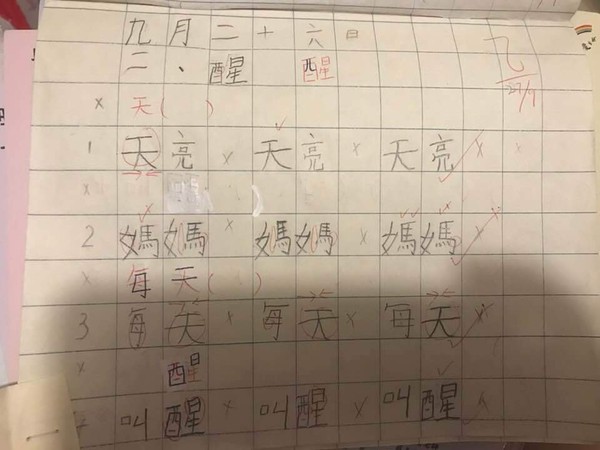 九月二十六日
二、醒 醒
× 天( )
1 天亮 × 天亮 × 天亮 × ×
×
2 媽媽 × 媽媽 × 媽媽 ×
× 每天( )
3 每天 × 每天 × 每天 ×
× 醒
叫醒 × 叫醒 × 叫醒 ×